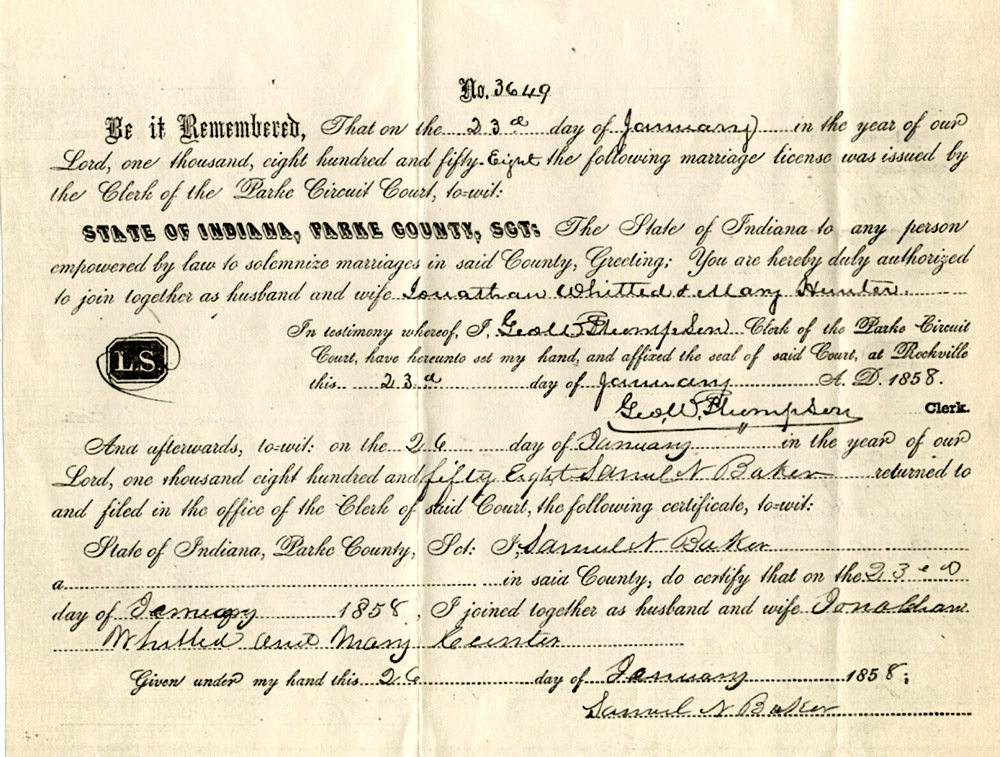 No. 3649
Be it Remembered, That on the 23d day of January in the year of our
Lord, one thousand, eight hundred and fifty-Eight the following marriage license was issued by
the Clerk of the Parke Circuit Court, to=wit:
STATE OF INDIANA, PARKE COUNTY, SCT: The State of Indiana to any person
empowered by law to solemnize marriages in said County, Greeting; You are hereby duly authorized
to join together as husband and wife Jonathan Whitted & Mary Hunter.
In testimony whereof, I, Geo W. Thompson Clerk of the Parke Circuit
Court, have hereunto set my hand, and affixed the seal of said Court, at Rockville
L.S.
this 23d day of January A. D. 1858.
Geo W. Thompson Clerk.
And afterwards, to=wit: on the 26 day of January in the year of our
Lord, one thousand eight hundred and fifty Eight Samuel N Baker returned to
and filed in the office of the Clerk of said Court, the following certificate, to=wit:
State of Indiana, Parke County, Sct: I, Samuel N Baker
a in said County, do certify that on the 23
day of January 1858, I joined together as husband and wife Jonathan
Whitted and Mary Hunter
Given under my hand this 26 day of January 1858;
Samuel N Baker